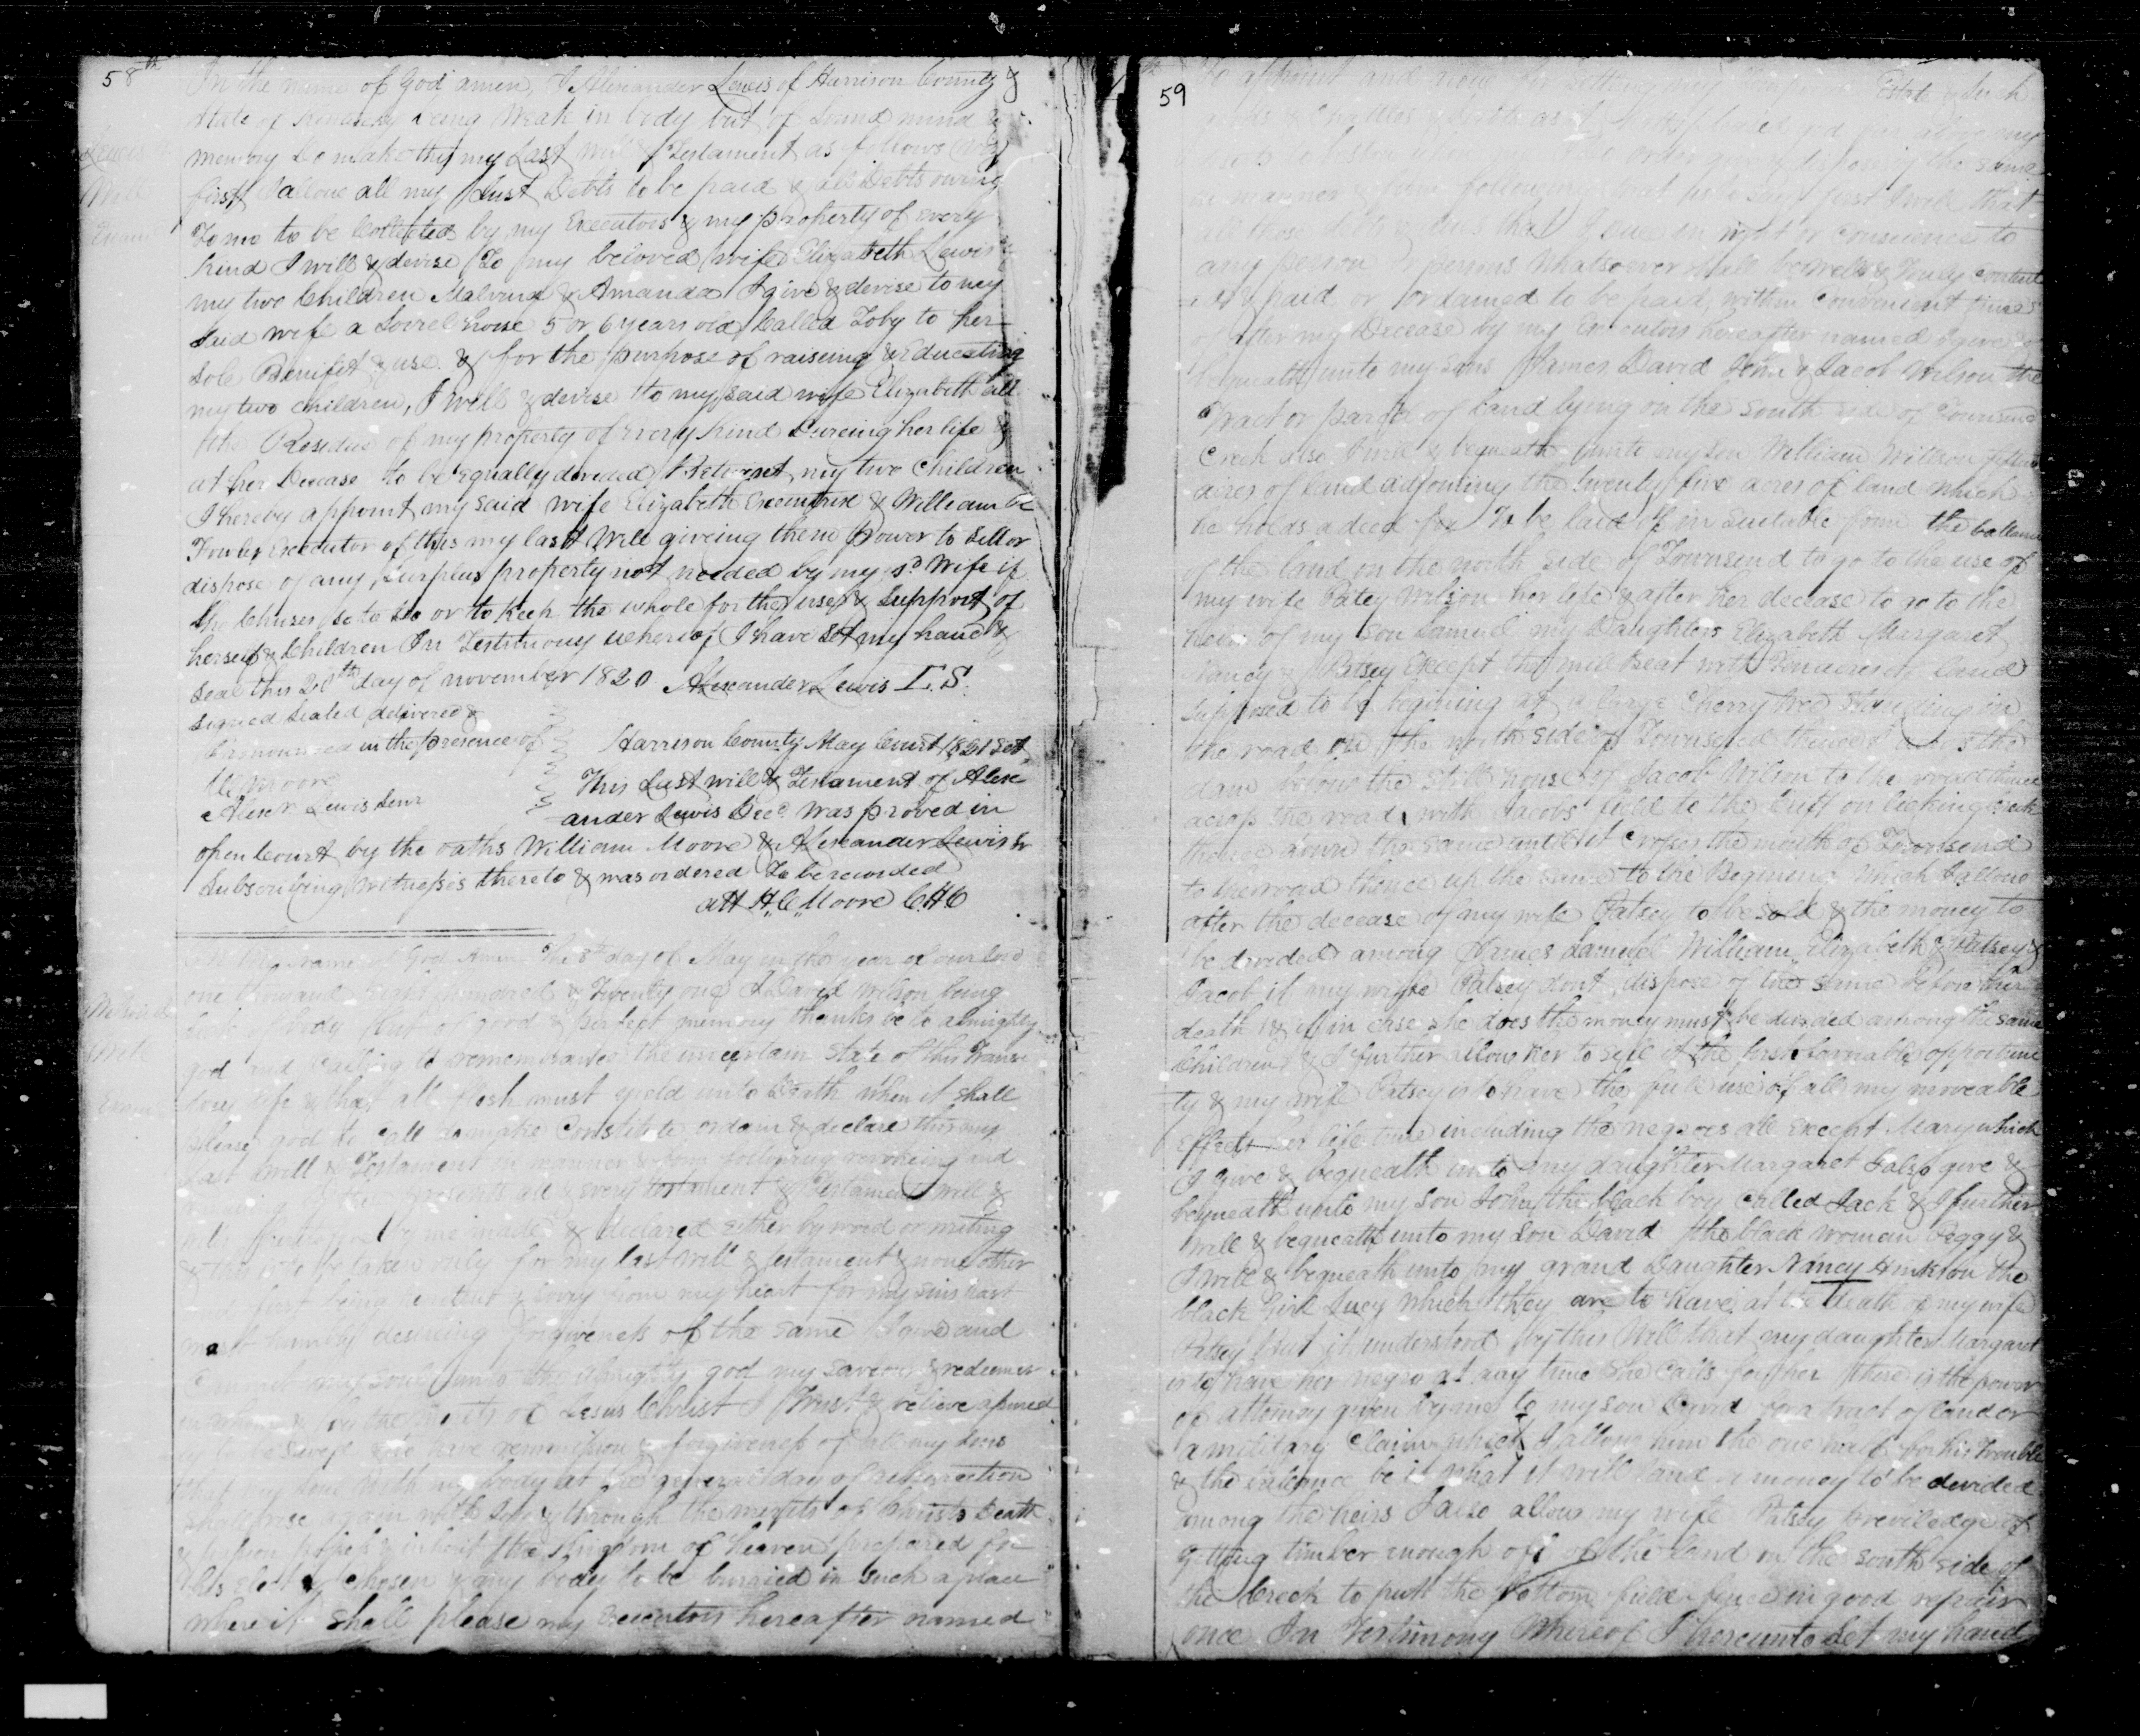 58th
In the name of God amen, I Alexander Lewis of Harrison County &
State of Kentucky being Weak in body but of Sound mind &
memory Do make this my Last Will & Testament as follows (viz)
first I allow all my Just Debts to be paid & all Debts owing
To me to be Collected by my Executors & my property of every
Kind I will & devise To my beloved wife Elizabeth Lewis &
my two Children Malvina & Amanda I give & devise to my
Said wife a Sorrel horse 5 or 6 years old Called Toby to her
Sole Benifit & use. & for the purpose of raiseing & Educating
my two children, I will & devise to my said wife Elizabeth all
the Residue of my property of Every Kind Dureing her life &
at her Decease to be Equally devided Betwixt my two Children
I hereby appoint my said wife Elizabeth Executrix & William
Executor of this my last Will giveing them power to Sell or
dispose of any Surplus property not needed by my sd Wife if
She Chuses so to do or to Keep the whole for the use & Support of
herself & Children In Testimony whereof I have Set my hand &
Seal this 20th day of november 1820 Alexander Lewis L.S.
Signed Sealed delivered &
Pronounced in the presence of
Moore
Alexr Lewis Senr
Harrison County May Court 1821 Sct
This Last will & Testament of Alex
ander Lewis Decd. was proved in
open Court by the oaths William Moore & Alexander Lewis Sr
Subscribing Witnesses thereto & was ordered To be recorded
att H. C. Moore CHC
Lewis
Will
name of God Amen The 8th day of May in the year of our Lord
one thousand Eight hundred & Twenty one I David Wilson being
body but of good & perfect memory thanks be to almighty
god and Calling to remembrance the uncertain State of this Transi
tory life & that all flesh must yield unto Death when it Shall
please god to Call do make Constitute ordain & declare this my
last Will & Testament in manner & form following revokeing and
by these presents all & every testament & Testaments will &
wills by me made & declared either by word or writing
& this is to be taken only for my last Will & testament & none other
and first being penitent & sorry from my heart for my sins past
most humbly desireing forgiveness of the same I give and
Commit my soul unto the almighty god my saveour & redeemer
in whom & by the merits of Jesus Christ I Trust & believe assured
ly to be saved & to have remission & forgiveness of all my sins
that my soul with my body at the general day of resurrection
shall rise again with Joy & through the merits of Christs Death
& passion possess & inherit the Kingdom of heaven prepared for
his elect & chosen & my body to be burried in such a place
where it shall please my Executors hereafter named
Will
59
To appoint and now for Estate & Such
goods & Chattles
order give & dispose of the same
in manner & form following that is to say first I will that
all those debts & dues that I owe in right or conscience to
any person or persons whatsoever shall be well & truly content
ed & paid or ordained to be paid within Convenient time
after my Decease by my Executors hereafter named I give &
bequeath unto my sons James, David John & Jacob Wilson the
Tract or parcel of Land lying on the South side of Townsend
Creek also I will & bequeath unto my son William Wilson fifteen
acres of Land adjoining the twenty five acres of land which
he holds a deed for To be laid off in suitable form the ballance
of the land on the north side of Townsend to go to the use of
my wife Patsy Wilson her life & after her decease to go to the
heirs of my Son Samuel my Daughters Elizabeth Margaret
Nancy & Patsey Except the mill seat with Ten acres of land
supposed to be begining at a large Cherry tree standing in
the road on the north side of Townsend thence the
dam below the still house of Jacob Wilson to the road thence
across the road with Jacobs field to the Cliff on licking Creek
thence down the same until it Crosses the mouth of Townsend
to the road thence up the same to the Begining which I allow
after the decease of my wife Patsey to be sold & the money to
be devided among James Samuel William, Elizabeth & Patsey &
Jacob if my wife Patsey dont dispose of the same before her
death & if in case she does the money must be devided among the same
Children & I further allow her to sell it the first favorable opportuni
ty & my wife Patsey is to have the full use of all my moveable
Effects her life time including the negroes all Except Mary which
I give & bequeath unto my daughter Margaret I also give &
bequeath unto my son John the black boy Called Jack & I further
will & bequeath unto my son David the black woman Peggy &
I will & bequeath unto my grand Daughter Nancy Hinkson the
black Girl Lucy which they are to have at the Death of my wife
Patsey but it understood by this Will that my daughter Margaret
is to have her negro at any time she Calls for her there is the power
of attorney given by me to my son David for a tract of land or
a military Claim which I allow him the one half for his Trouble
& the balance be it what it will land or money to be devided
among the heirs I also allow my wife Patsey previledge of
getting timber enough off of the land on the South side of
the Creek to putt the bottom field fence in good repair
once In Testimony Whereof I hereunto Set my hand